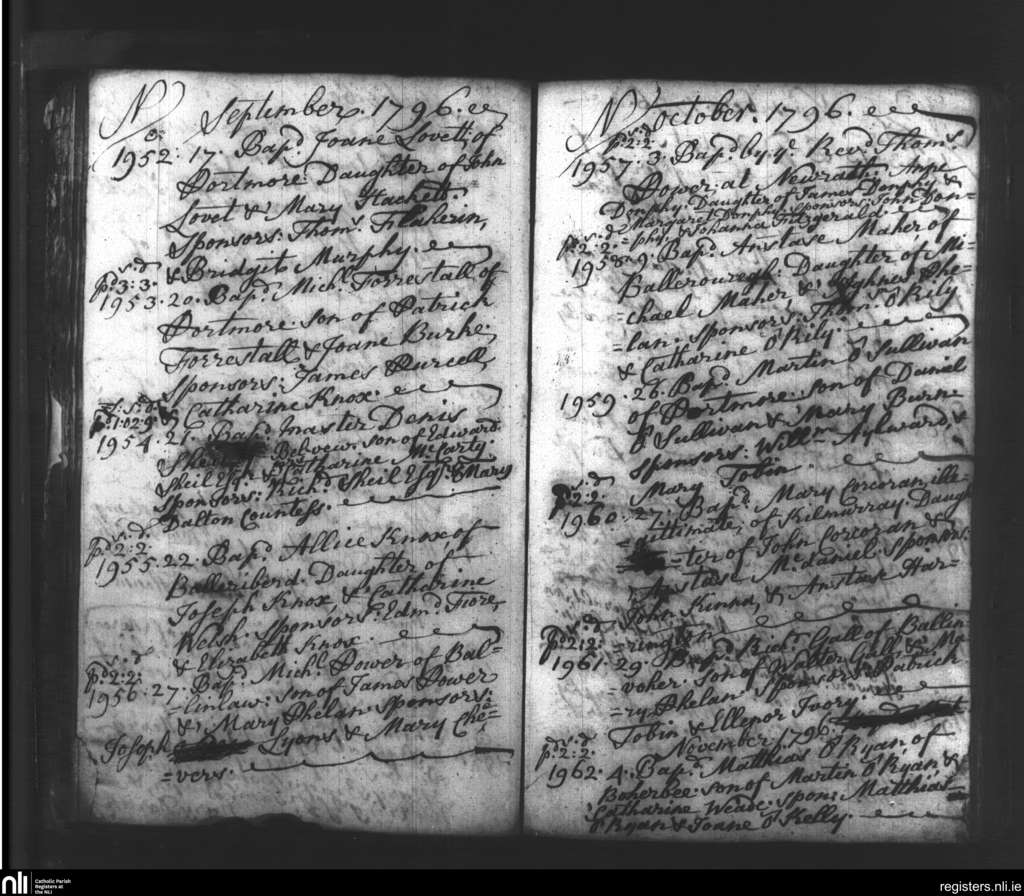 No September. 1796.
1952. 17. Bapd. Joane Lovett; of
Portmore: Daughter of John
Lovet & Mary Hackett.
Sponsors: Thoms.
& Bridgit Murphy.
s. d
pd 3: 3.
1953. 20. Bapd. Michl. Forrestall of
Portmore. son of Patrick
Forrestall & Joane Burke.
Sponsors: James Purcell
& Catharine Knox.
1954. 21. Bapd. master Denis
Sheil Belvew. son of Edward
Sheil Esqr. & Catharine McCarty.
Sponsors: Richd. Sheil Esqr. & Mary
Dalton Countess.
s. d.
pd 2: 2.
1955. 22. Bapd. Allice Knox, of
Daughter of
Joseph Knox, & Catharine
Welsh. Sponsors: Edmd. Fiore,
& Elizabeth Knox.
s. d
pd 2: 2.
1956. 27. Bapd. Michl. Power of Bal=
=linlaw: son of James Power
& Mary Phelan. Sponsors:
Joseph Lyons & Mary Che=
=vers.
No October. 1796.
s. d
pd 2: 2.
1957. 3. Bapd. by ye. Revd. Thoms.
Power: at Newrath: Anne
Donphy. Daughter of James Donphy &
Margaret Donphy. Sponsors: John Don=
=phy, & Johanna Fitzgerald.
s. d
pd 2. 2.
1958. 9. Bapd. Anstase Maher of
Daughter of Mi=
=chael Maher, & Aghnes Phe=
=lan. sponsors: Thoms. O'Rily
& Catharine O'Rily
1959. 26. Bapd. Martin O'Sullivan
of Portmore son of Daniel
O'Sullivan & Mary Burne
sponsors: Willm. Aylward, &
Mary Tobin.
s. d
pd 2: 2.
1960. 27. Bapd. Mary Corcoran, ille=
=gittimate; of Kilmurray. Daugh=
=ter of John Corcoran &
Anstase McDaniel. Sponsors:
John Kinna, & Anstase Har=
=rington
s. d
pd 2: 2.
1961. 29. Bapd. Richd. Gall of Ballin=
=voher. son of Walter Gall, & Ma=
=ry Phelan. Sponsors: Patrick
Tobin & Ellenor Ivory.
November. 1796.
s. d
pd 2: 2.
1962. 4. Bapd. Matthias O'Ryan of
son of Martin O'Ryan, &
Catharine Weade. spon: Matthias
O'Ryan & Joane O'Kelly.
nli
Catholic Parish
Registers at
the NLI
registers.nli.ie